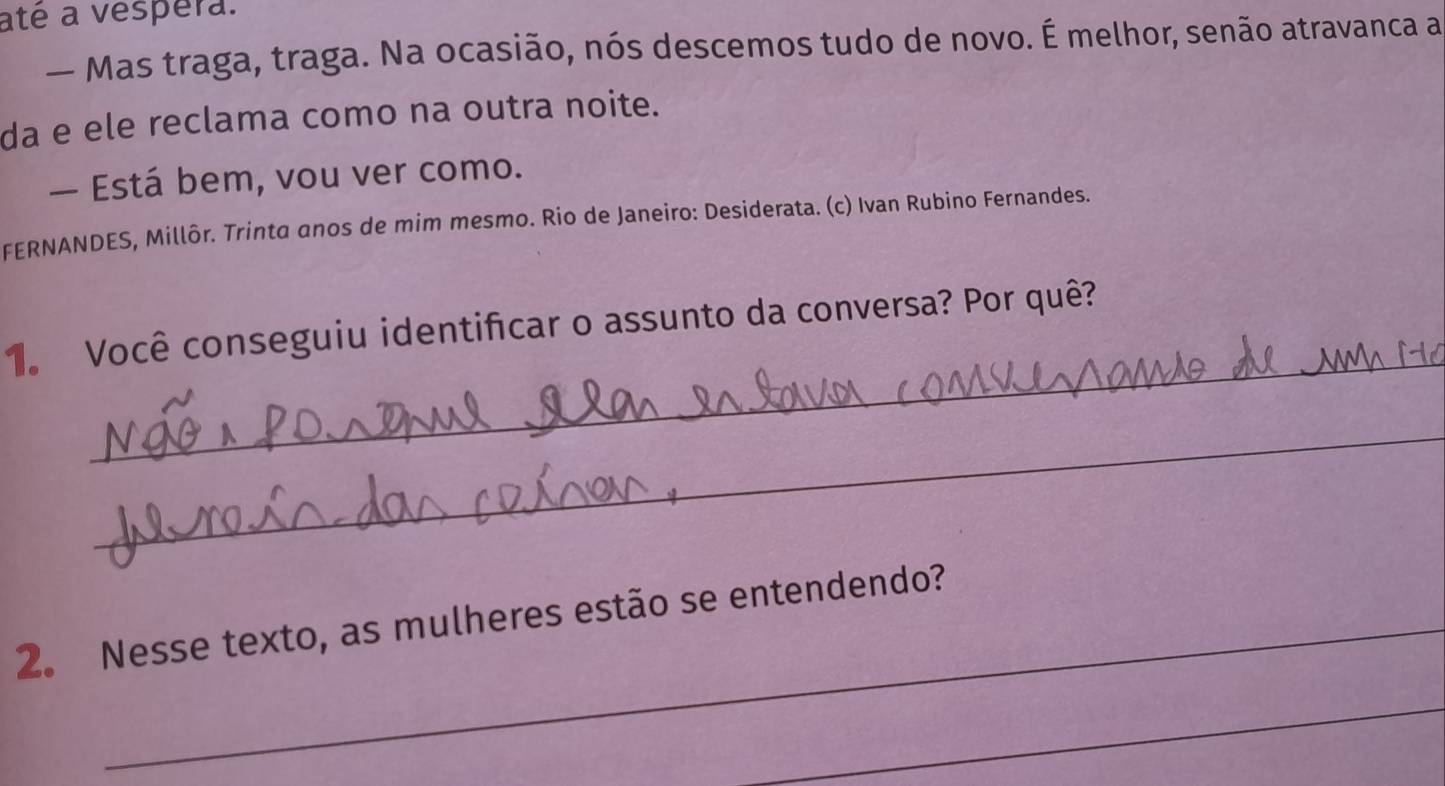 até a véspera.
— Mas traga, traga. Na ocasião, nós descemos tudo de novo. É melhor, senão atravanca a
da e ele reclama como na outra noite.
— Está bem, vou ver como.
FERNANDES, Millôr. Trinta anos de mim mesmo. Rio de Janeiro: Desiderata. (c) Ivan Rubino Fernandes.
1. Você conseguiu identificar o assunto da conversa? Por quê?
Não, porque elas estava conversando de um
das coisas.
2. Nesse texto, as mulheres estão se entendendo?